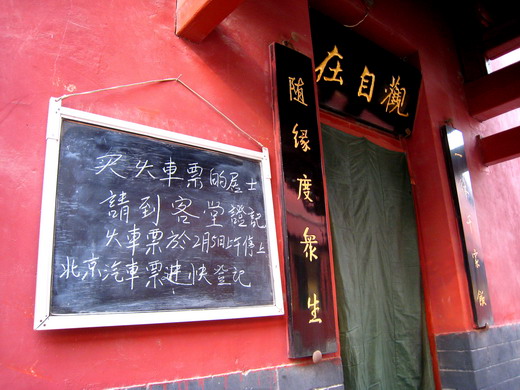 買火車票的居士
請到客堂登記
火車票於2月5日上午停上
北京汽車票建快登記
觀自在
隨緣度眾生